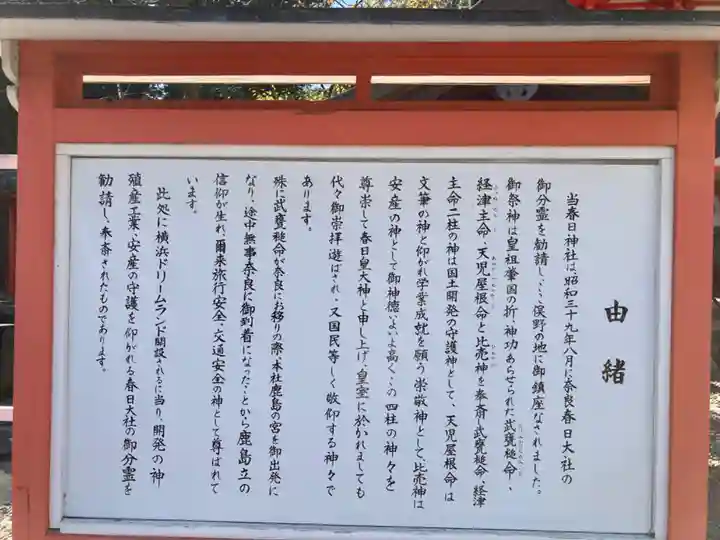 由緒
当春日神社は、昭和三十九年八月に奈良春日大社の
御分霊を勧請し、ここ俣野の地に御鎮座なされました。
御祭神は皇祖肇国の折、神功あらせられた武甕槌命、
経津主命、天児屋根命と比売神を奉斎し武甕槌命、経津
主命二柱の神は国土開発の守護神として、天児屋根命は
文筆の神と仰がれ学業成就を願う崇敬神として、比売神は
安産の神として御神徳いよいよ高く、この四柱の神々を
尊崇して春日皇大神と申し上げ、皇室に於かれましても
代々御崇拝遊ばされ、又国民等しく敬仰する神々で
あります。
殊に武甕槌命が奈良にお移りの際、本社鹿島の宮を御出発に
なり、途中無事奈良に御到着になったことから鹿島立の
信仰が生れ、爾来旅行安全、交通安全の神として尊ばれて
います。
此処に横浜ドリームランド開設されるに当り、開発の神
殖産工業、安産の守護を仰がれる春日大社の御分霊を
勧請し、奉斎されたものであります。